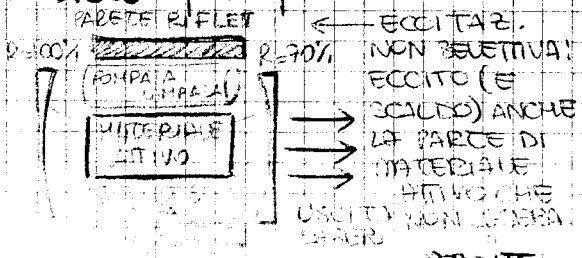 PARETE RIFLET
R=100%
R=70%
POMPA A
MATERIALE
ATTIVO
← ECCITAZ.
NON SELETTIVA!
ECCITO (E
SCALDO) ANCHE
LA PARTE DI
MATERIALE
ATTIVO CHE
NON
USCITA
LASER